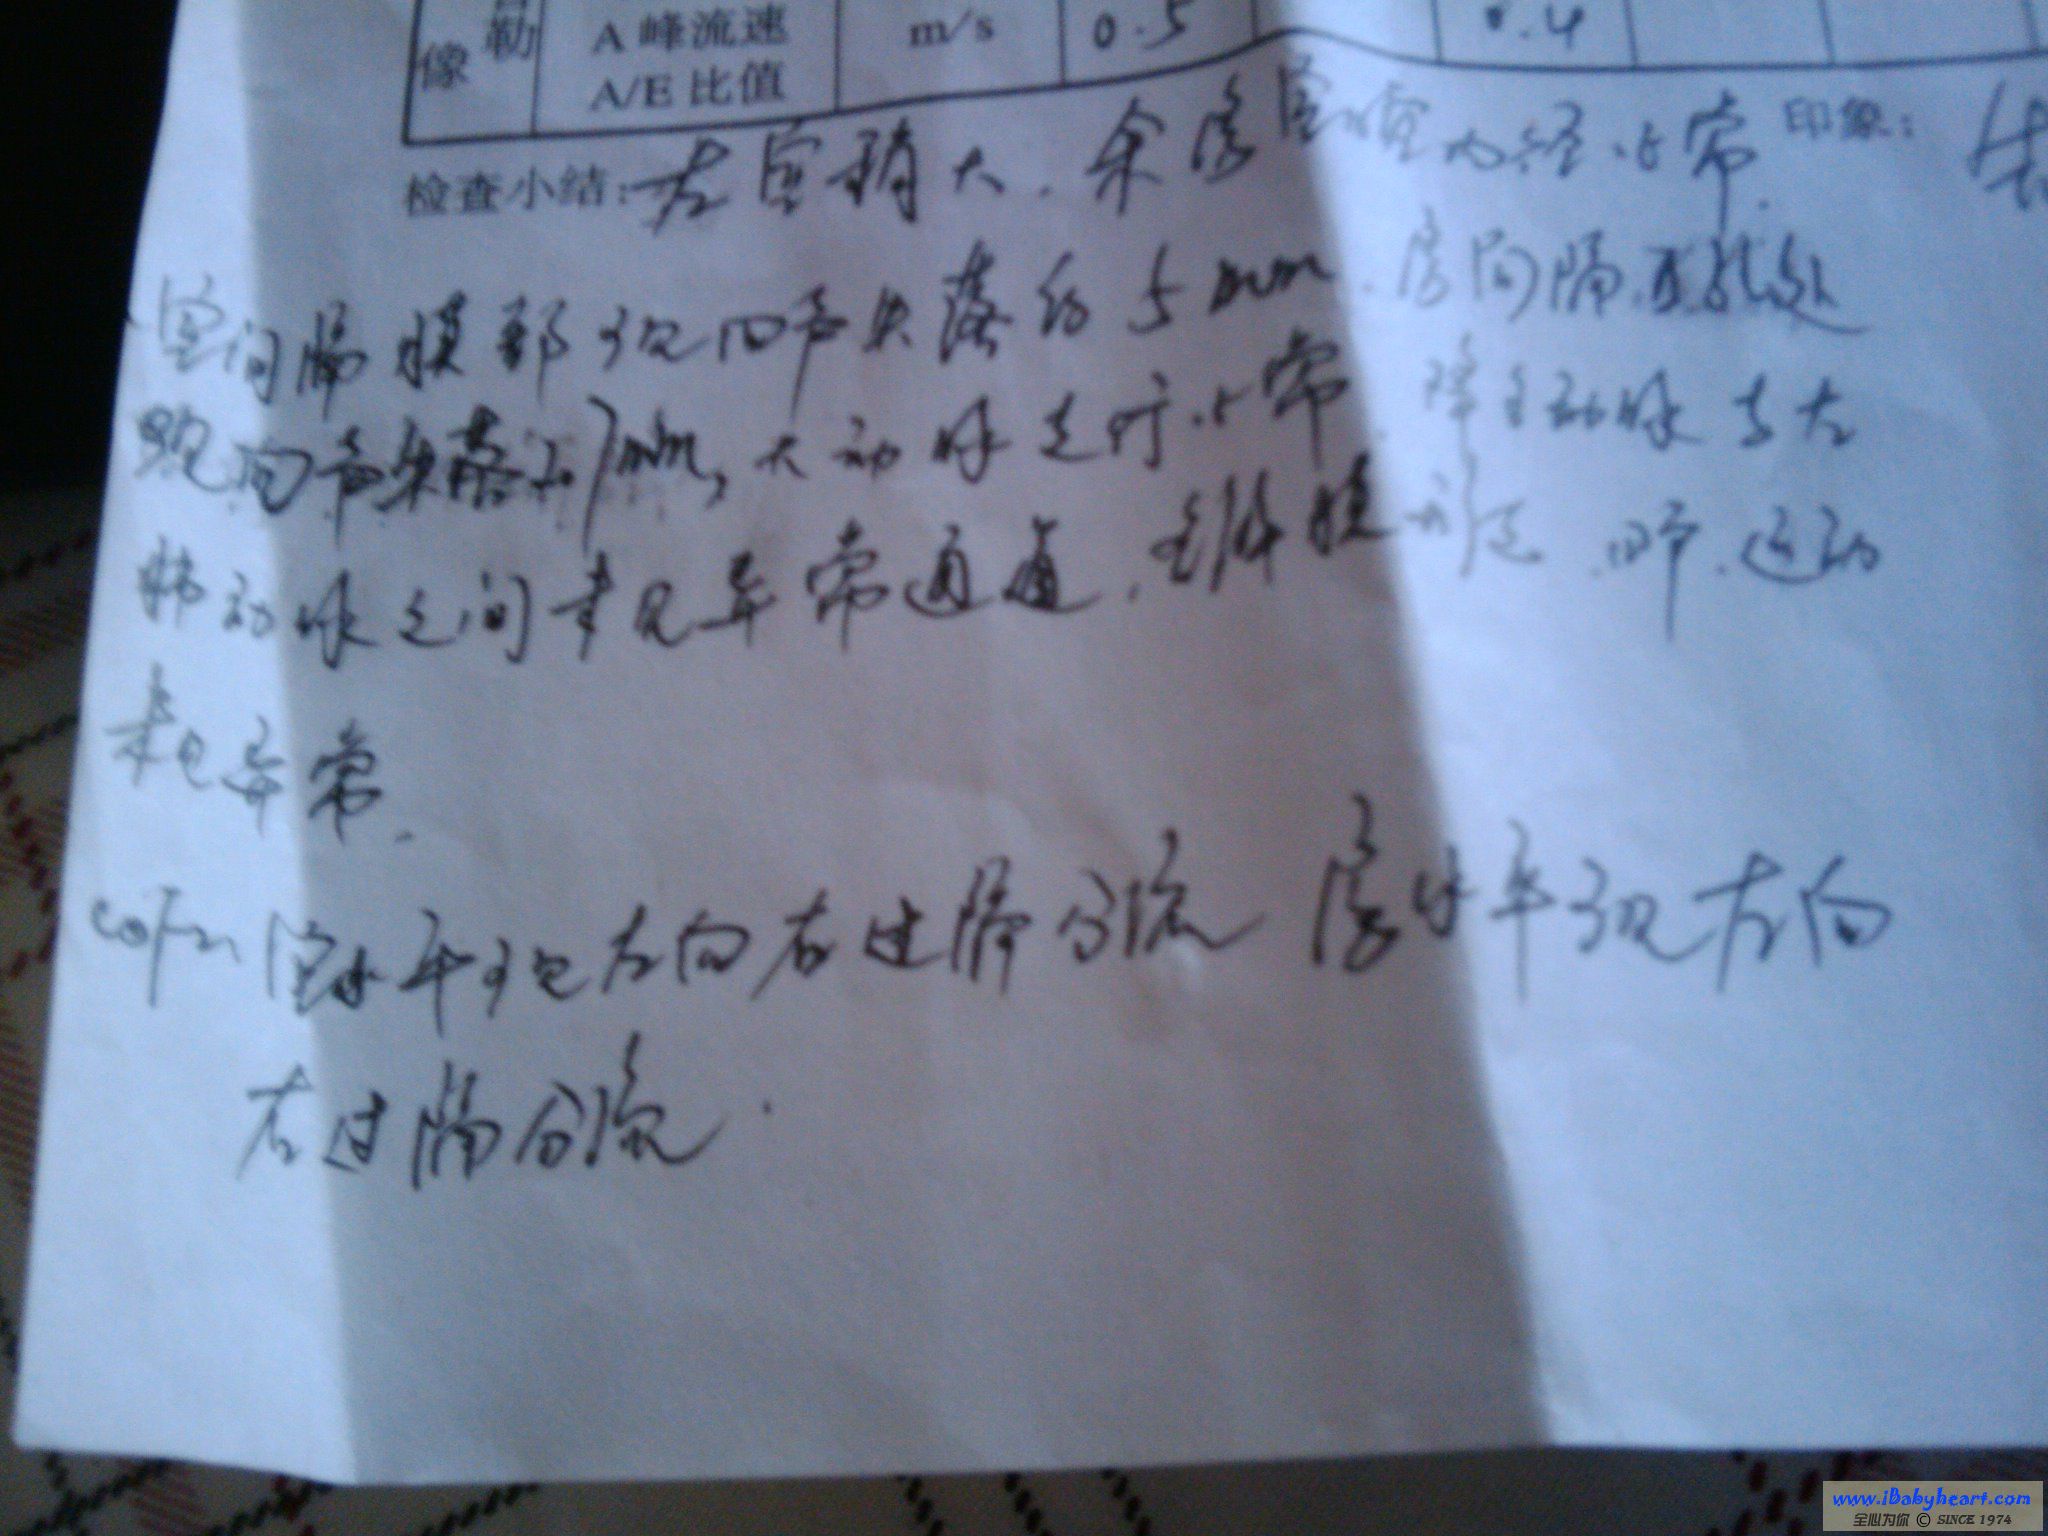 像 勒 A 峰流速 m/s 0.5 0.4
A/E 比值
检查小结: 左室稍大. 余房室腔内径正常. 印象:
室间隔膜部可见回声失落约5mm. 房间隔卵圆孔处
见回声失落 mm, 大动脉走行正常. 降主动脉与左
肺动脉之间未见异常通道. 各瓣膜形态. 回声. 运动
未见异常.
CDFI 室水平可见左向右过隔分流 房水平可见左向
右过隔分流.
www.iBabyheart.com
全心为你 © SINCE 1974